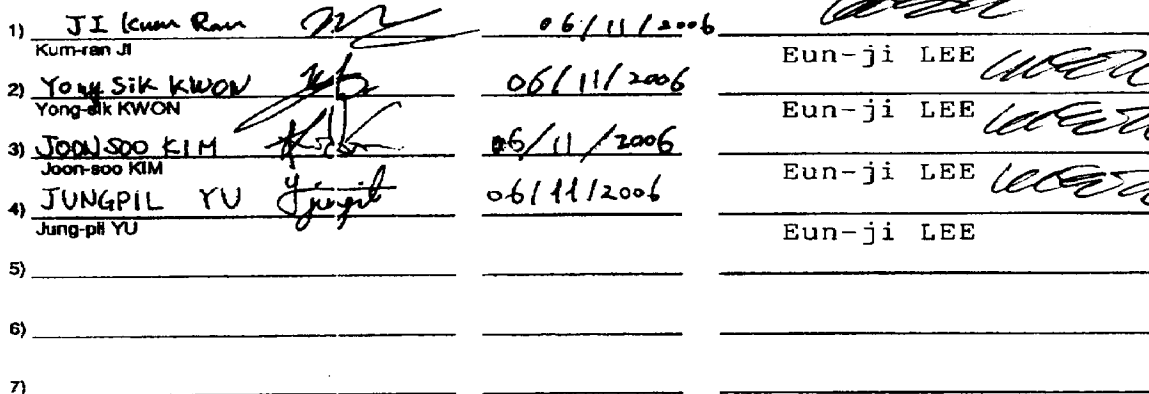 1) JI Kum Ran 06/11/2006
Kum-ran JI Eun-ji LEE
2) Yong Sik KWON 06/11/2006
Yong-sik KWON Eun-ji LEE
3) JOONSOO KIM 06/11/2006
Joon-soo KIM Eun-ji LEE
4) JUNGPIL YU 06/11/2006
Jung-pil YU Eun-ji LEE
5)
6)
7)